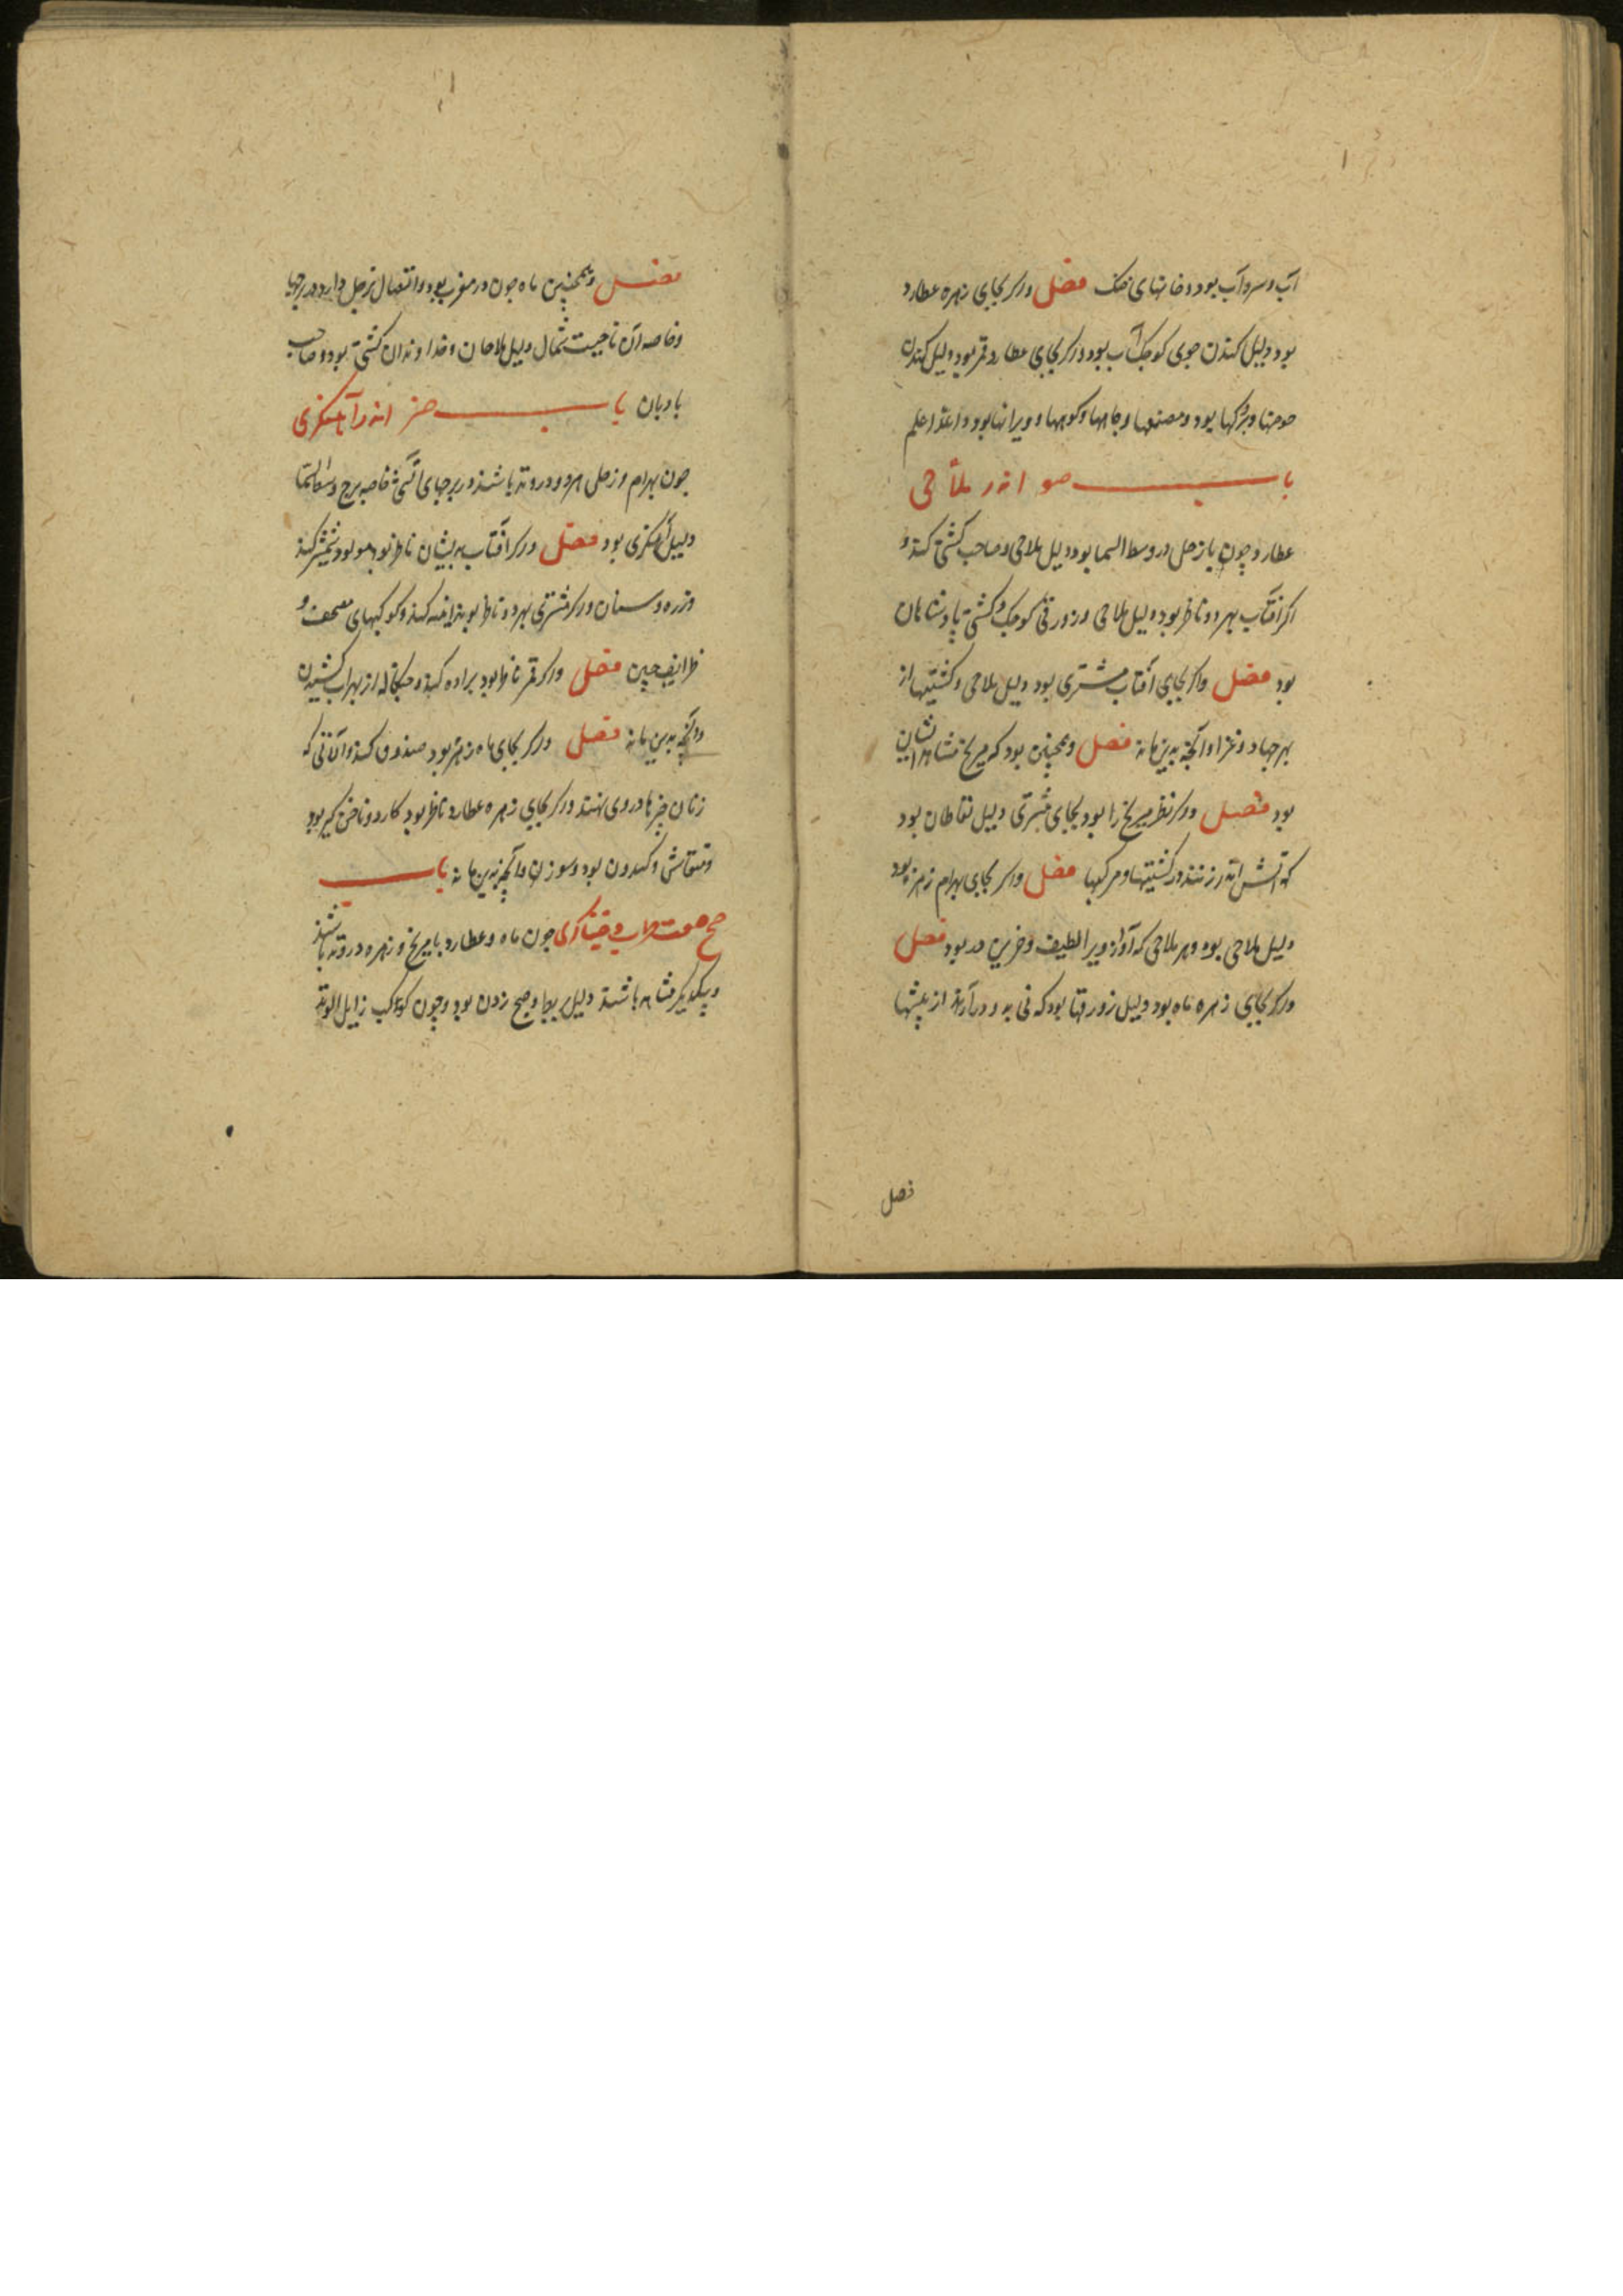 آب و سرد آب بود و خانهای خنک فصل و اکر بجای زهره عطارد
بود دلیل کندن جوی کوچک آب بود و اکر بجای عطارد قمر بود دلیل کندن
حوضها و برکها بود و مصنعها و چاهها و کوهها و ویرانها بود و الله اعلم
باب صو اندر ملاحی
عطارد چون با زحل در وسط السما بود دلیل ملاحی و صاحب کشتی کند و
اکر آفتاب بهردو ناظر بود دلیل ملاحی و زورقی کوچک و کشتی پادشاهان
بود فصل و اکر بجای آفتاب مشتری بود دلیل ملاحی و کشتیها از
بهر جهاد و غزا و آنچه بدین ماند فصل و همچنین بود که مریخ مشاهد ایشان
بود فصل و اکر نظر مریخ را بود بجای مشتری دلیل نفاطان بود
که آتش اندر زنند در کشتیها و مرکبها فصل و اکر بجای بهرام زهره بود
دلیل ملاحی بود و هر ملاحی که آواز ویرا لطیف و حزین بود فصل
و اکر بجای زهره ماه بود دلیل زورقها بود که نی بدو درآرند از بیشها
فصل
فصل و همچنین ماه چون در مغرب بود و اتصال بزحل دارد در برجها
و خاصه آن ناحیت شمال دلیل ملاحان و خداوندان کشتی بود و صاحب
بادبان باب صز اندر آهنکری
چون بهرام و زحل هردو در وتد باشند در برجهای آتشی خاصه برج وسط السما
دلیل آهنکری بود فصل و اکر آفتاب بدیشان ناظر بود مولود شمشیر کند
و زره و سنان و اکر مشتری بهردو ناظر بود کند و کوکبهای مصحف و
ظرایف چین فصل و اکر قمر ناظر بود براده کند و از بهر آب کشیدن
و آنچه بدین ماند فصل و اکر بجای ماه زهره بود صندوق کند و آلاتی که
زنان چیزها در وی نهند و اکر بجای زهره عطارد ناظر بود کارد و ناخن کیر بود
و منقاش و کلیدون بود و سوزن و آنچه بدین ماند باب
صح چون ماه و عطارد با مریخ و زهره در وتد باشند
و بیکدیکر مشاهد باشند دلیل و صنج زدن بود و چون کواکب زایل الوتد